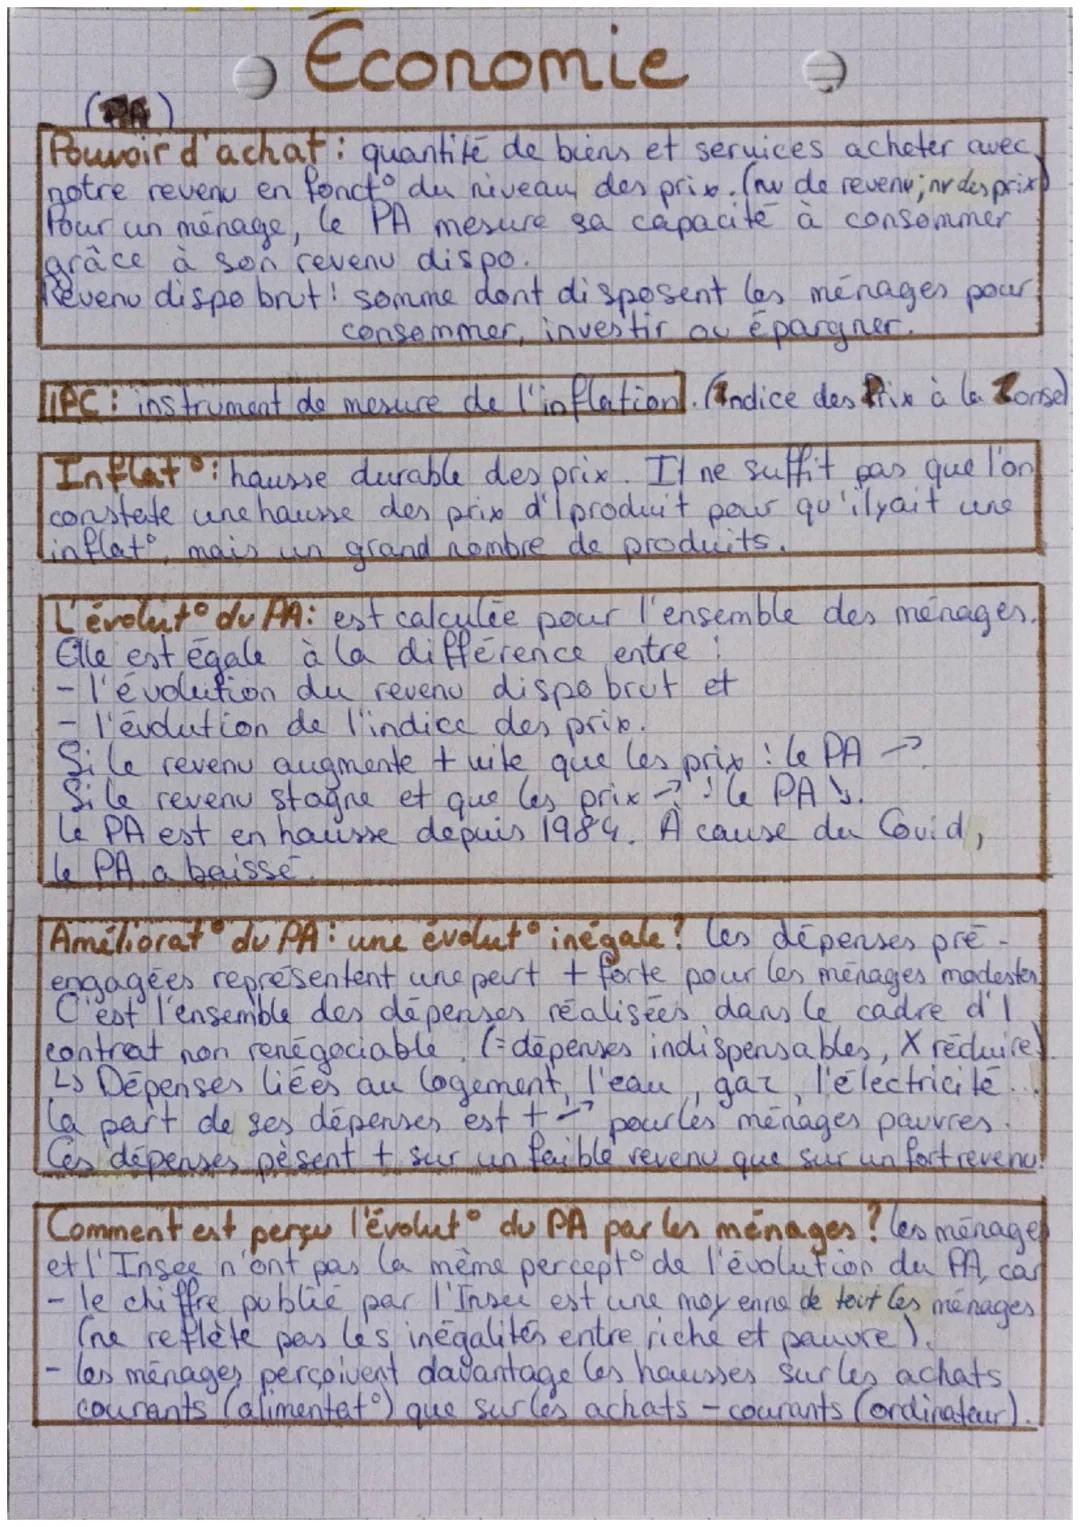 Économie
(PA)
Pouvoir d'achat : quantité de biens et services acheter avec
notre revenu en fonct° du niveau des prix. (nv de revenu ; nv des prix)
Pour un ménage, le PA mesure sa capacité à consommer
grâce à son revenu dispo.
Revenu dispo brut : somme dont disposent les ménages pour
consommer, investir ou épargner.
IPC : instrument de mesure de l'inflation. (Indice des Prix à la Conso)
Inflat° : hausse durable des prix. Il ne suffit pas que l'on
constate une hausse des prix d'1 produit pour qu'il y ait une
inflat°, mais un grand nombre de produits.
L'évolut° du PA : est calculée pour l'ensemble des ménages.
Elle est égale à la différence entre :
- l'évolution du revenu dispo brut et
- l'évolution de l'indice des prix.
Si le revenu augmente + vite que les prix : le PA ↗.
Si le revenu stagne et que les prix ↗ : le PA ↘.
Le PA est en hausse depuis 1984. À cause du Covid,
le PA a baissé.
Améliorat° du PA : une évolut° inégale ? Les dépenses pré-
engagées représentent une part + forte pour les ménages modestes.
C'est l'ensemble des dépenses réalisées dans le cadre d'1
contrat non renégociable. (= dépenses indispensables, X réduire).
↳ Dépenses liées au logement, l'eau, gaz, l'électricité...
La part de ses dépenses est + ↗ pour les ménages pauvres.
Ces dépenses pèsent + sur un faible revenu que sur un fort revenu.
Comment est perçu l'évolut° du PA par les ménages ? Les ménages
et l'Insee n'ont pas la même percept° de l'évolution du PA, car
- le chiffre publié par l'Insee est une moyenne de tout les ménages
(ne reflète pas les inégalités entre riche et pauvre).
- les ménages perçoivent davantage les hausses sur les achats
courants (alimentat°) que sur les achats - courants (ordinateur).